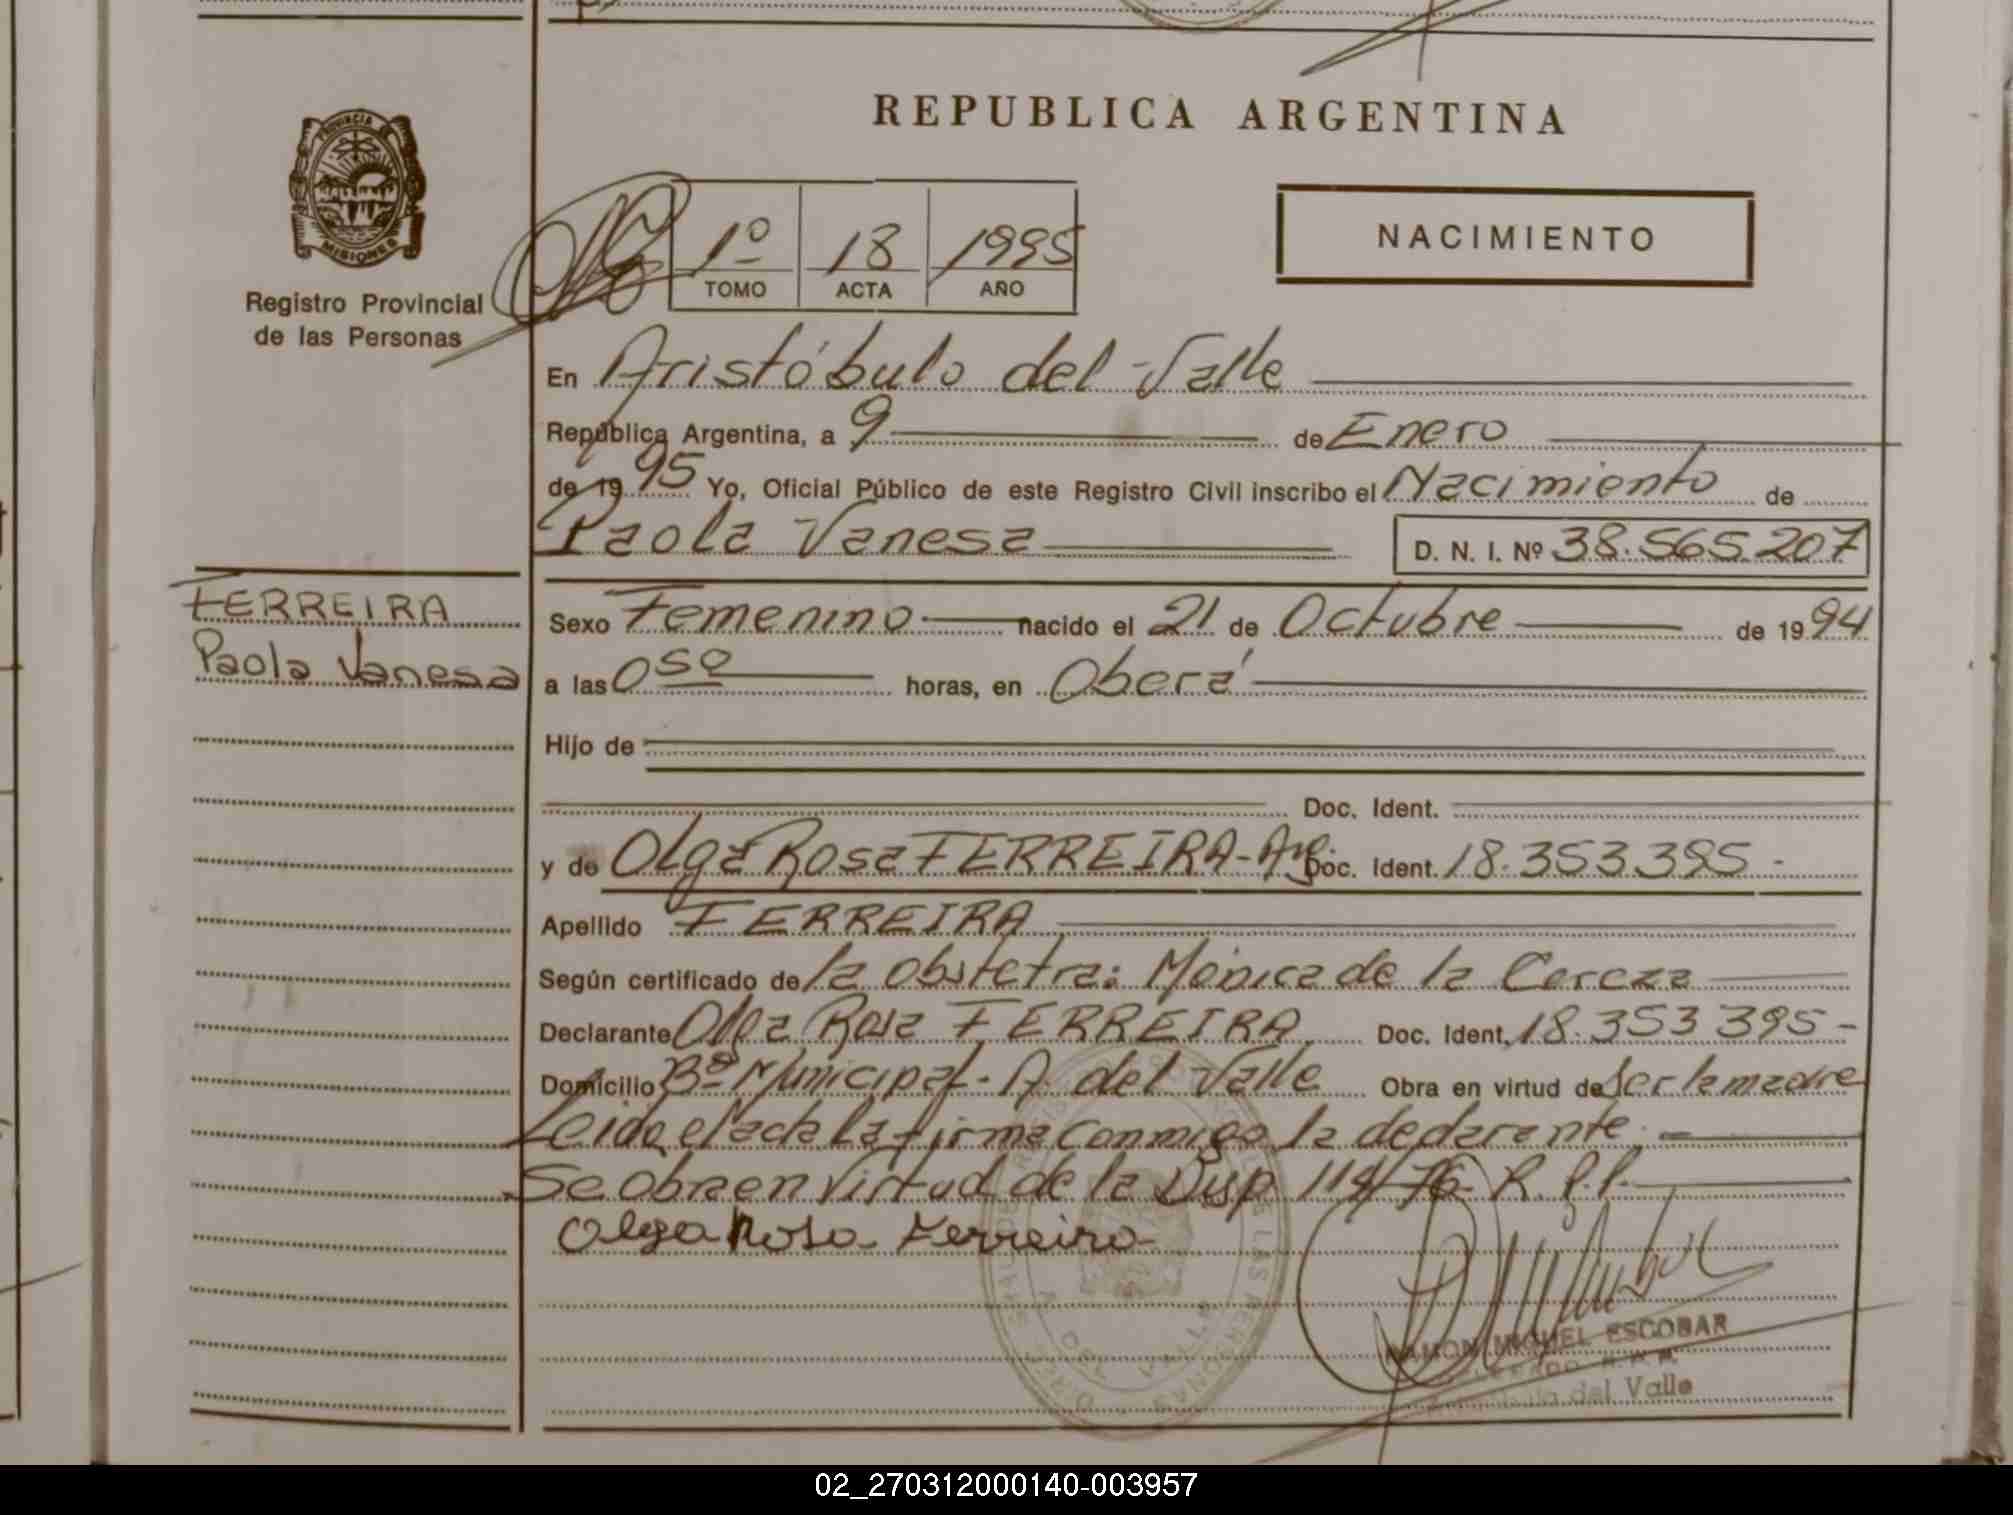 REPUBLICA ARGENTINA
PROVINCIA DE
MISIONES
Registro Provincial
de las Personas
1º 18 1995
TOMO ACTA AÑO
NACIMIENTO
En Aristóbulo del Valle
República Argentina, a 9 de Enero
de 19 95 Yo, Oficial Público de este Registro Civil inscribo el Nacimiento de
Paola Vanesa D. N. I. Nº 38.565.207
FERREIRA
Paola Vanesa
Sexo Femenino nacido el 21 de Octubre de 19 94
a las 0 50 horas, en Oberá
Hijo de
Doc. Ident.
y de Olga Rosa FERREIRA-Arg. Doc. Ident. 18.353.395-
Apellido FERREIRA
Según certificado de la obstetra: Mónica de la
Declarante Olga Rosa FERREIRA Doc. Ident. 18.353 395-
Domicilio Bº Municipal- A. del Valle Obra en virtud de ser la madre
Leido el acta la firma conmigo la declarante.-
Se obra en virtud de la Disp. 114/76 R.P.P.
Olga Rosa Ferreira
RAMON MIGUEL ESCOBAR
del Valle
02_270312000140-003957